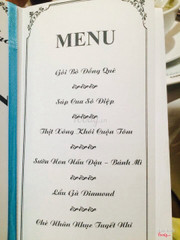 MENU
Gỏi Bò Đồng Quê
Súp Cua Sò Điệp
Thịt Xông Khói Cuộn Tôm
Sườn Non Nấu Đậu - Bánh Mì
Lẩu Gà Diamond
Chè Nhãn Nhục Tuyết Nhĩ